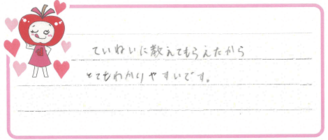 ていねいに教えてもらえたから
とてもわかりやすいです。